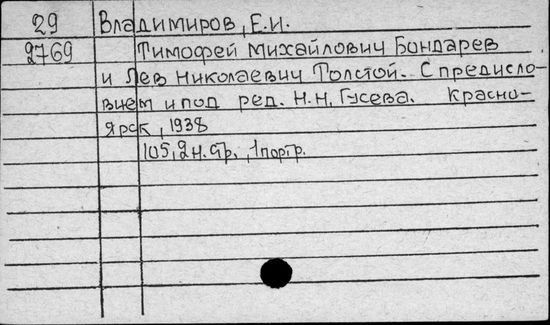 29 Владимиров, Е.И.
2769 Тимофей Михайлович Бондарев
и Лев Николаевич Толстой. С предисло-
вием и под ред. Н.Н. Гусева. Красно-
ярск, 1938
105, 2 н. стр., 1 портр.